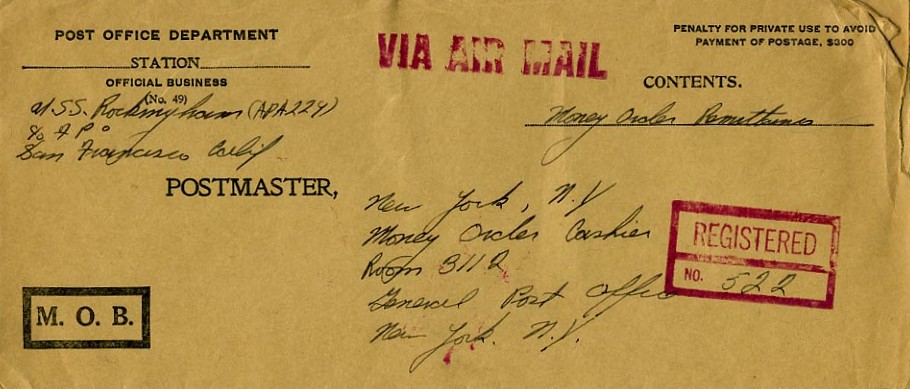 POST OFFICE DEPARTMENT
STATION
OFFICIAL BUSINESS
(No. 49)
U.S.S. Rockingham (APA 229)
% F P O
San Francisco Calif
VIA AIR MAIL
PENALTY FOR PRIVATE USE TO AVOID
PAYMENT OF POSTAGE, $300
CONTENTS.
Money Order Remittance
POSTMASTER,
New York, N.Y
Money Order Cashier
Room 3112
General Post Office
New York. N.Y.
REGISTERED
NO. 522
M. O. B.